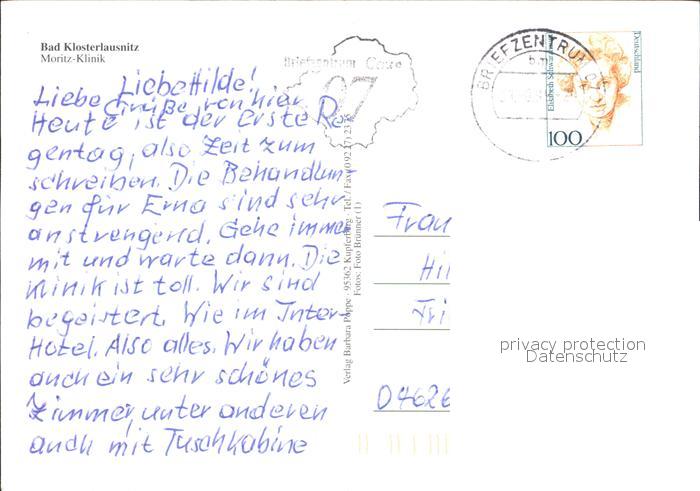 Bad Klosterlausnitz
Moritz-Klinik
Liebe Hilde!
Liebe Grüße von hier
Heute ist der erste Re-
gentag, also Zeit zum
schreiben. Die Behandlun-
gen für Erna sind sehr
anstrengend. Gehe immer
mit und warte dann. Die
Klinik ist toll. Wir sind
begeistert. Wie im Inter-
Hotel. Also alles. Wir haben
auch ein sehr schönes
Zimmer, unter anderen
auch mit Tuschkabine
Briefzentrum
07
Verlag Barbara Poppe · 95362 Kupferberg · Tel. / Fax 0 92 27/
Fotos: Foto Brünner (1)
BRIEFZENTRUM 07
Elisabeth Schwarz
Deutschland
100
Frau
Hil
04626
privacy protection
Datenschutz